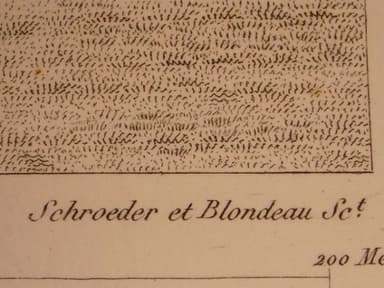 Schroeder et Blondeau Sc.t
200 Me